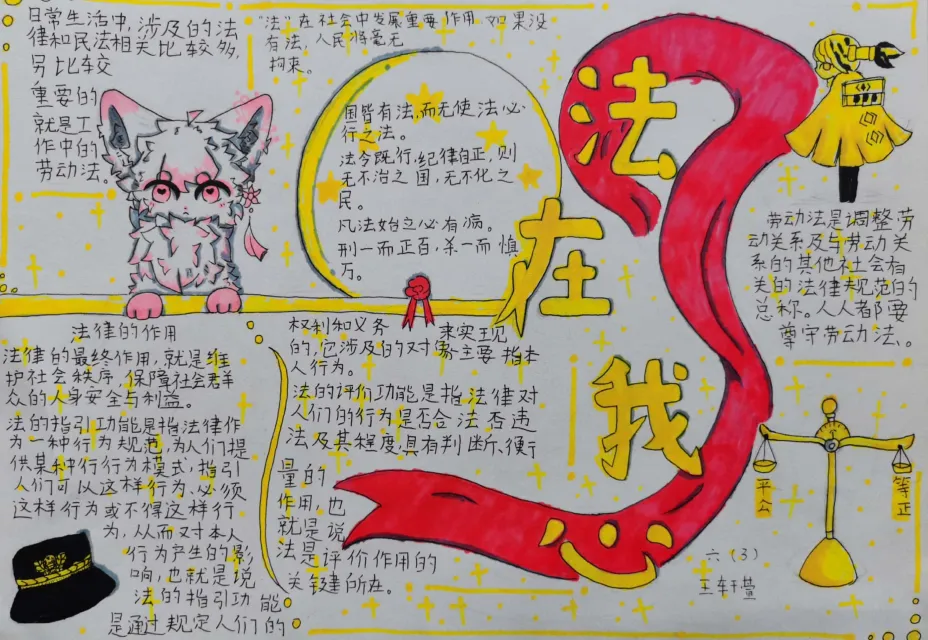 日常生活中,涉及的法
律和民法相关比较多,
另比较
重要的
就是工
作中的
劳动法。
"法"在社会中发展重要作用,如果没
有法,人民将毫无
拘束。
国皆有法,而无使法必
行之法。
法令既行,纪律自正,则
无不治之国,无不化之
民。
凡法始立必有病。
刑一而正百,杀一而慎
万。
法
在
我
心
劳动法是调整劳
动关系及与劳动关
系的其他社会有
关的法律规范的
总称。人人都要
尊守劳动法、。
法律的作用
法律的最终作用,就是维
护社会秩序,保障社会群
众的人身安全与利益。
法的指引功能是指法律作
为一种行为规范,为人们提
供某种行行为模式,指引
人们可以这样行为、必须
这样行为或不得这样行
为,从而对本人
行为产生的影
响,也就是说
法的指引功能
是通过规定人们的
权利和义务来实现
的,它涉及的对象主要指本
人行为。
法的评价功能是指,法律对
人们的行为是否合法否违
法及其程度,具有判断、衡
量的
作用,也
就是说
法是评价作用的
关键所在。
平公
等正
六(3)
王轩萱